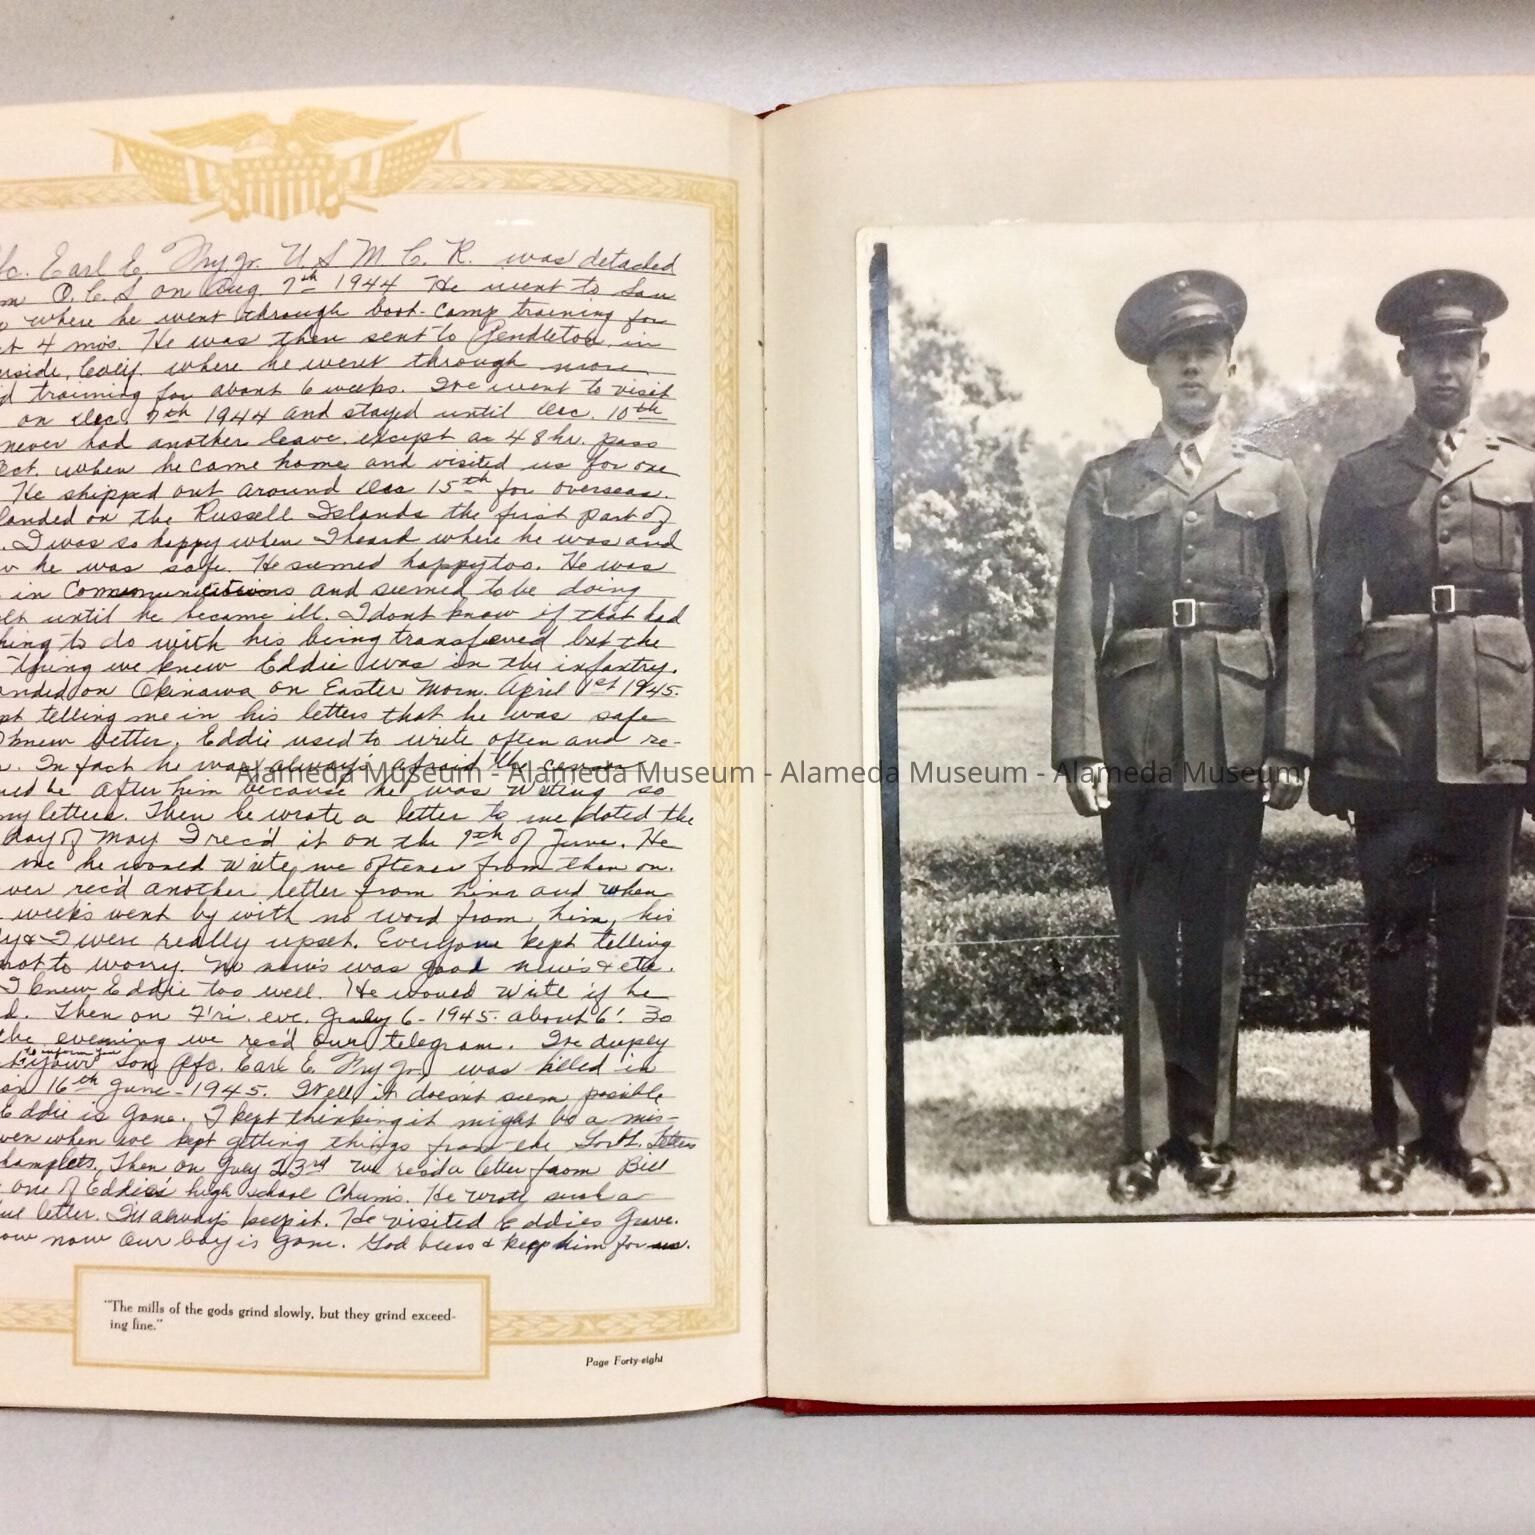 Earl E. U. S. M. C. R. was detached
O. C. S on Aug. 7th 1944 He went to San
where he went through boot-camp training for
4 mos. He was then sent to Pendleton in
where he went through more
training for about 6 weeks. We went to visit
on Dec. 9th 1944 and stayed until Dec. 10th
never had another leave, except a 48 hr. pass
Oct. when he came home and visited us for one
He shipped out around Dec 15th for overseas.
landed on the Russell Islands the first part of
. I was so happy when I heard where he was and
he was safe. He seemed happy too. He was
in Communications and seemed to be doing
until he became ill. I dont know if that had
to do with his being transfered but the
thing we knew Eddie was in the infantry.
on Okinawa on Easter Morn. April 1st 1945.
telling me in his letters that he was safe
knew better. Eddie used to write often and re-
. In fact he was always afraid the censor
be after him because he was writing so
my letters. Then he wrote a letter to me dated the
day of May I rec'd it on the 9th of June. He
me he would write me oftener from then on.
rec'd another letter from him and when
weeks went by with no word from him, his
& I were really upset. Everyone kept telling
not to worry. No news was good news & etc.
I knew Eddie too well. He would write if he
. Then on Fri. eve. July 6 - 1945. about 6:30
the evening we rec'd our telegram. I've deeply
to inform you
your son Pfc. Earl E. was killed in
16th June - 1945. Well it doesn't seem possible
Eddie is gone. I kept thinking it might be a mis-
when we kept getting things from the Gov't. letters
. Then on July 23rd we rec'd a letter from Bill
one of Eddies' high school Chums. He wrote such a
letter. I'll always keep it. He visited Eddies Grave.
now our boy is gone. God bless & keep him for us.
"The mills of the gods grind slowly, but they grind exceed-
ing fine."
Page Forty-eight
Alameda Museum - Alameda Museum - Alameda Museum - Alameda Museum